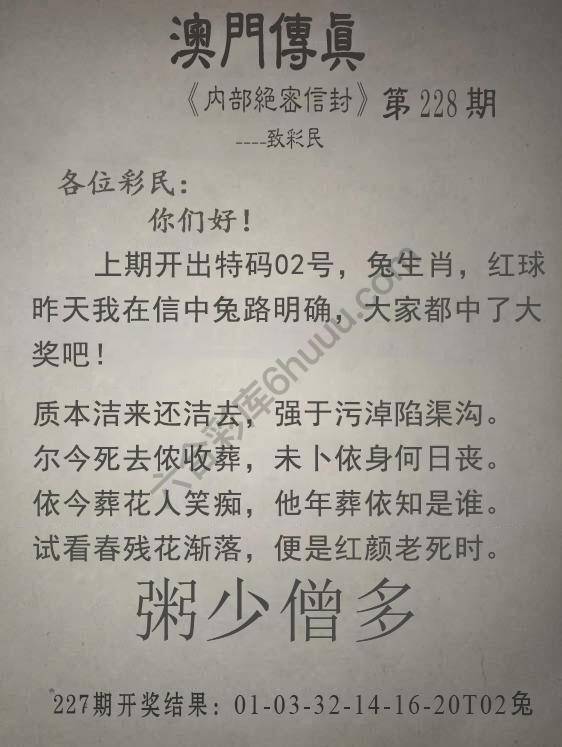 澳門傳眞
《内部絕密信封》第228期
----致彩民
各位彩民：
你们好！
上期开出特码02号，兔生肖，红球
昨天我在信中兔路明确，大家都中了大
奖吧！
质本洁来还洁去，强于污淖陷渠沟。
尔今死去侬收葬，未卜依身何日丧。
依今葬花人笑痴，他年葬依知是谁。
试看春残花渐落，便是红颜老死时。
粥少僧多
227期开奖结果：01-03-32-14-16-20T02兔
六合彩库6huuu.com